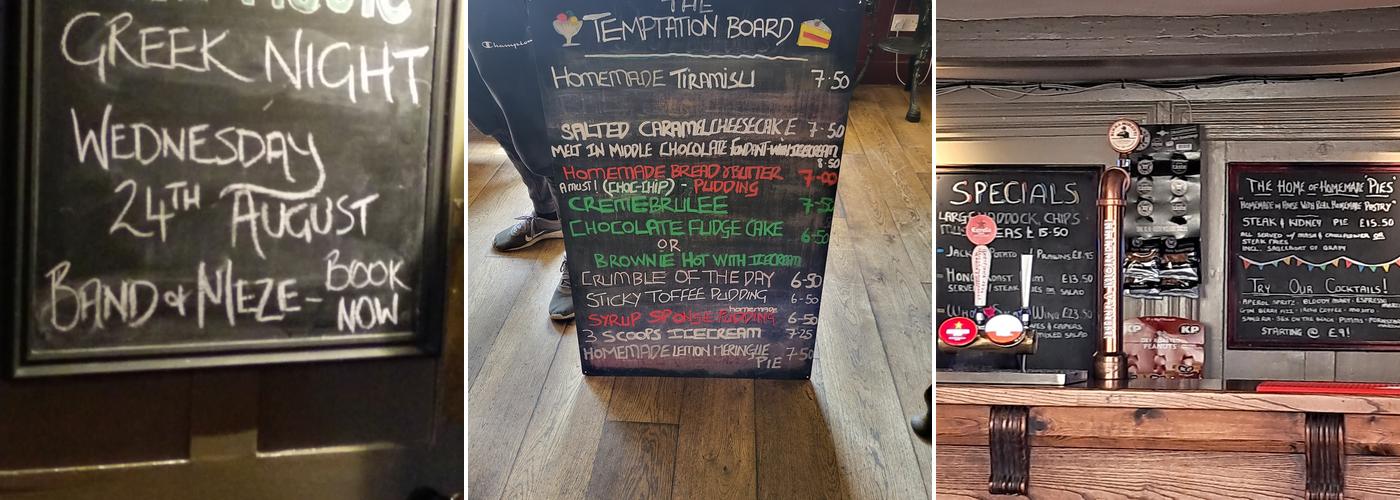 GREEK NIGHT
WEDNESDAY
24TH AUGUST
BAND & MEZE - BOOK NOW
THE
TEMPTATION BOARD
Champion
HOMEMADE TIRAMISU 7.50
SALTED CARAMEL CHEESECAKE 7.50
MELT IN MIDDLE CHOCOLATE FONDANT WITH ICECREAM
8.50
HOMEMADE BREAD & BUTTER 7-00
A MUST! (CHOC-CHIP) - PUDDING
CREME BRULEE 7-50
CHOCOLATE FUDGE CAKE 6-50
OR
BROWNIE HOT WITH ICECREAM
CRUMBLE OF THE DAY 6-50
STICKY TOFFEE PUDDING 6-50
homemade
SYRUP SPONGE PUDDING 6-50
3 SCOOPS ICECREAM 7-25
HOMEMADE LEMON MERINGUE 7-50
PIE
SPECIALS
LARGE HADDOCK, CHIPS
PEAS £15-50
JACK POTATO PRAWNS £8.95
ROAST HAM £13.50
OR SALAD
WING £23.50
& CAPERS
OR SALAD
KP KP
DRY ROASTED
PEANUTS
THE HOME OF HOMEMADE "PIES"
HOMEMADE IN HOUSE WITH REAL HOMEMADE PASTRY
STEAK & KIDNEY PIE £15.50
ALL SERVED W/ MASH & CAULIFLOWER OR
STEAK FRIES
INCL. SAUCEBOAT OF GRAVY
TRY OUR COCKTAILS!
APEROL SPRITZ - BLOODY MARY - ESPRESSO
GIN BERRY FIZZ - IRISH COFFEE - MOJITO
SANGRIA - SEX ON THE BEACH - PIMMS -
STARTING @ £9!